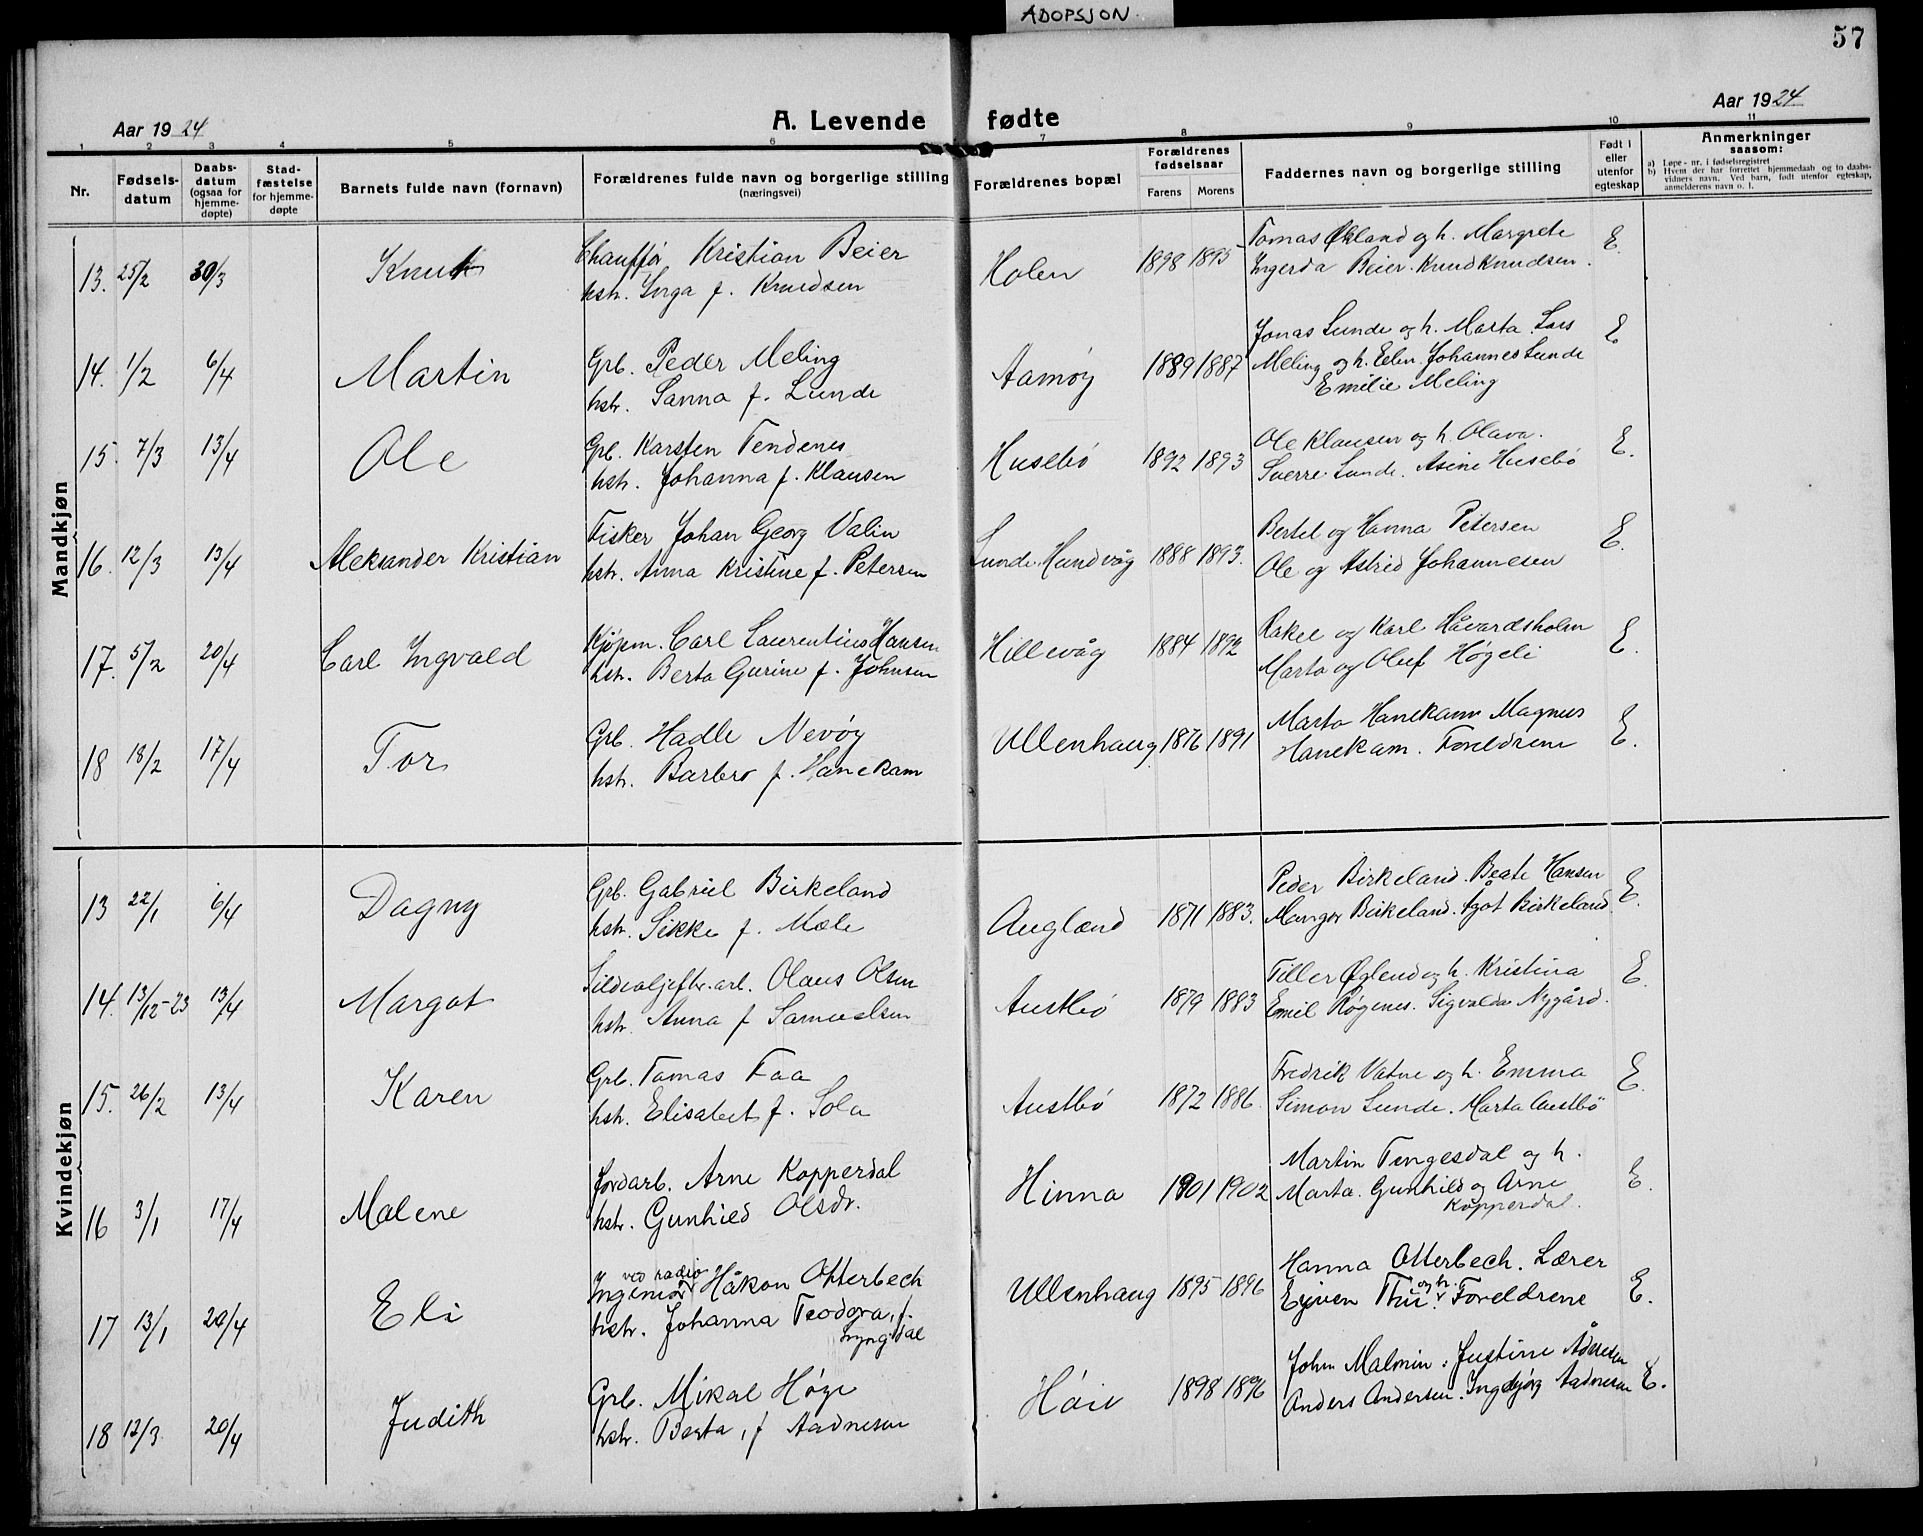 ADOPSJON.
57
Aar 1924
A. Levende fødte
Aar 1924
1 2 3 4 5 6 7 8 9 10 11
Nr.
Fødsels-datum
Daabs-datum (ogsaa for hjemme-døpte)
Stad-fæstelse for hjemme-døpte
Barnets fulde navn (fornavn)
Forældrenes fulde navn og borgerlige stilling (næringsvei)
Forældrenes bopæl
Forældrenes fødselsaar
Farens Morens
Faddernes navn og borgerlige stilling
Født i eller utenfor egteskap
Anmerkninger saasom:
a) Løpe-nr. i fødselsregistret
b) Hvem der har forrettet hjemmedaab og to daabsvidners navn. Ved barn, født utenfor egteskap, anmelderens navn o. l.
Mandkjøn
13. 25/2 30/3 Knut
Chauffør Kristian Beier
hstr. Inga f. Knudsen
Holen 1898 1895
Tomas Økland og h. Margrete
Ingerda Beier. Knud Knudsen.
E.
14. 1/2 6/4 Martin
Grb. Peder Meling
hstr. Sanna f. Lunde
Aamøy 1889 1887
Jonas Lunde og h. Marta. Lars
Meling og h. Elen. Johannes Lunde
Emilie Meling
E
15. 7/3 13/4 Ole
Grb. Karsten Tendenes
hstr. Johanna f. Klausen
Husebø 1892 1893
Ole Klausen og h. Olava.
Sverre Lunde. Asine Husebø
E.
16. 12/3 13/4 Aleksander Kristian
Fisker Johan Georg Valin
hstr. Anna Kristine f. Petersen
Lunde, Hundvåg 1888 1893.
Bertel og Hanna Petersen
Ole og Astrid Johannesen
E.
17. 5/2 20/4 Carl Ingvald
Kjøpm. Carl Laurentius Hansen
hstr. Berta Gurine f. Johnsen
Hillevåg 1884 1892
Rakel og Karl Håvardsholm
Marta og Oluf Høgeli
E.
18 18/2 17/4 Tor
Grb. Hadle Nevøy
hstr. Barbro f. Hanekam
Ullenhaug 1876 1891
Marta Hanekam Magnus
Hanekam. Foreldrene
E.
Kvindekjøn
13 22/1 6/4 Dagny
Grb. Gabriel Birkeland
hstr. Sikke f. Mæle
Auglænd 1871 1883.
Peder Birkeland. Beate Hansen
Mangor Birkeland. Agot Birkeland.
E.
14. 13/12-23 13/4 Margot
Sildoljefbr.arb. Olaus Olsen
hstr. Anna f Samuelsen
Austbø 1879 1883
Tiller Øglend og h. Kristina
Emil Røgenes. Sigvalda Nygård.
E.
15. 26/2 13/4 Karen
Grb. Tomas Faa
hstr. Elisabet f. Sola
Austbø 1872 1886.
Fredrik Vatne og h. Emma
Simon Lunde. Marta Austbø
E.
16 3/1 17/4 Malene
Jordarb. Arne Kopperdal
hstr. Gunhild Olsdr.
Hinna 1901 1902
Martin Tengesdal og h.
Marta. Gunhild og Arne
Kopperdal.
E.
17 13/1 20/4 Eli
Ingeniør ved radio Håkon Otterbech
hstr. Johanna Teodora, f.
Lyngdal
Ullenhaug 1895 1896
Hanna Otterbech. Lærer
Ejven Thu og h. Foreldrene
E.
18 12/3 20/4 Judith
Grb. Mikal Høge
hstr. Berta, f Aadnesen
Høie 1898 1896
John Malmin. Justine Ådnesen
Anders Andersen. Ingebjørg Aadnesen
E.